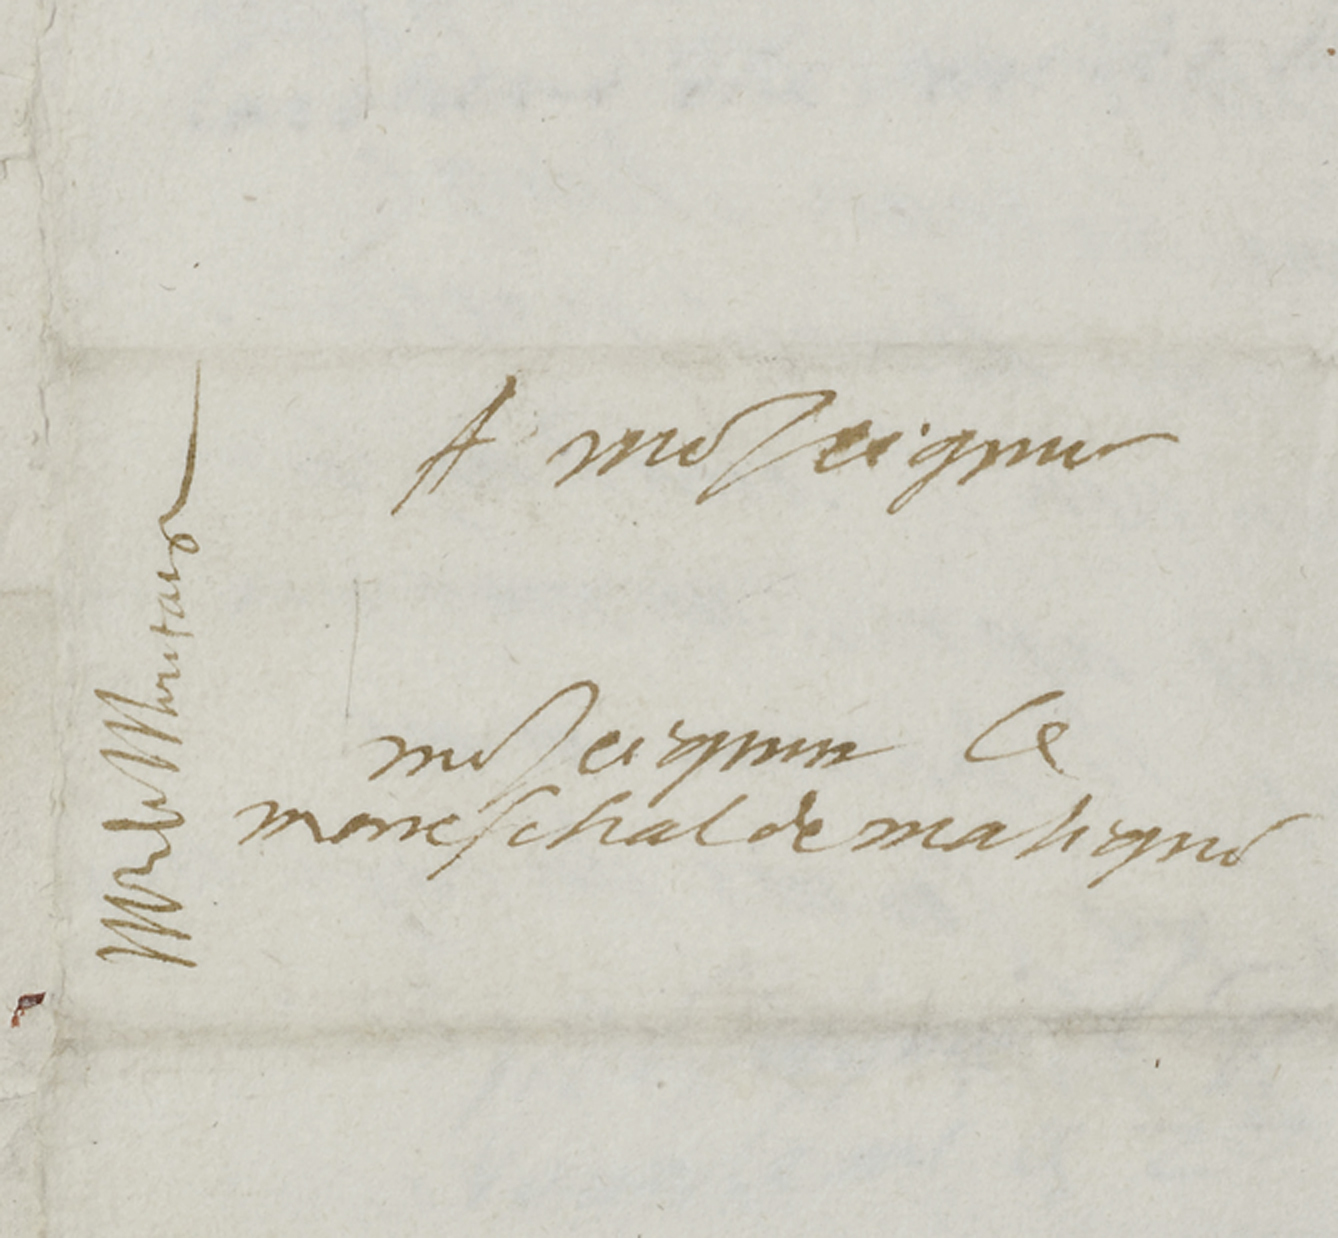 A monseigneur
monseigneur le
mareschal de matignon
Mr de Montaigne